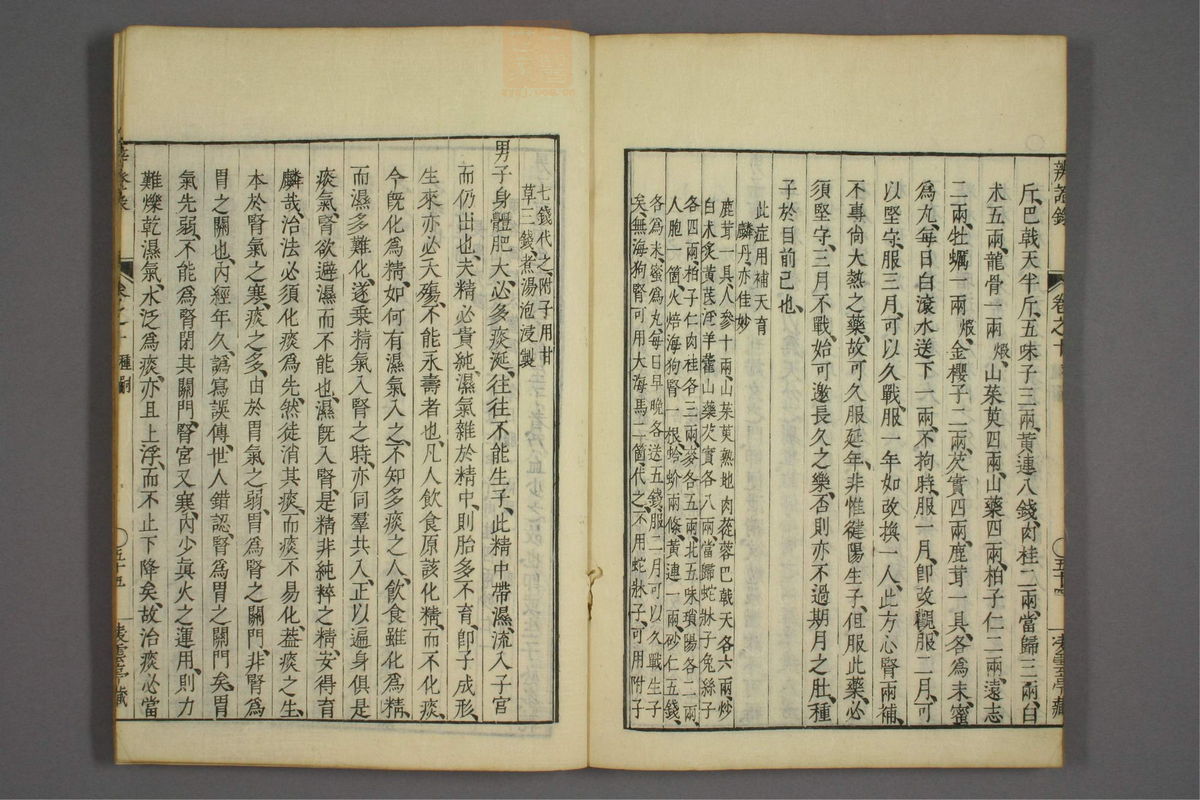 辨證錄
卷之十
五十四
斤、巴戟天半斤、五味子三兩、黃連八錢、肉桂二兩、當歸三兩、白
朮五兩、龍骨一兩煅、山茱萸四兩、山藥四兩、柏子仁二兩、遠志
二兩、牡蠣一兩煅、金櫻子二兩、芡實四兩、鹿茸一具、各爲末、蜜
爲丸、每日白滾水送下一兩、不拘時、服一月、卽改觀、服二月、可
以堅守、服三月、可以久戰、服一年如改換一人、此方心腎兩補、
不專尙大熱之藥、故可久服延年、非惟健陽生子、但服此藥、必
須堅守、三月不戰、始可邀長久之樂、否則亦不過期月之壯、種
子於目前已也、
此症用補天育
麟丹、亦佳妙
鹿茸一具、人參十兩、山茱萸熟地肉蓯蓉巴戟天各六兩、炒
白朮炙黃芪淫羊藿山藥芡實各八兩、當歸蛇牀子兔絲子
各四兩、柏子仁肉桂各三兩、麥冬五兩、北五味瑣陽各二兩、
人胞一箇、火焙海狗腎一根、蛤蚧兩條、黃連一兩、砂仁五錢、
各爲末、蜜爲丸、每日早晚各送五錢、服二月可以久戰生子
矣、無海狗腎可用大海馬二箇、代之、不用蛇牀子、可用附子
七錢代之、附子用甘
草三錢、煮湯泡浸製
男子身體肥大、必多痰涎、往往不能生子、此精中帶濕、流入子宮
而仍出也、夫精必貴純、濕氣雜於精中、則胎多不育、卽子成形、
生來亦必夭殤、不能永壽者也、凡人飲食原該化精、而不化痰、
今旣化爲精、如何有濕氣入之、不知多痰之人、飲食雖化爲精、
而濕多難化、遂乘精氣入腎之時、亦同羣共入、正以遍身俱是
痰氣、腎欲避濕而不能也、濕旣入腎、是精非純粹之精、安得育
麟哉、治法必須化痰爲先、然徒消其痰、而痰不易化、葢痰之生、
本於腎氣之寒、痰之多、由於胃氣之弱、胃爲腎之關門、非腎爲
胃之關也、內經年久譌寫誤傳、世人錯認、腎爲胃之關門矣、胃
氣先弱、不能爲腎閉其關門、腎宮又寒、內少眞火之運用、則力
難爍乾濕氣、水泛爲痰、亦且上浮、而不止下降矣、故治痰必當
五十五